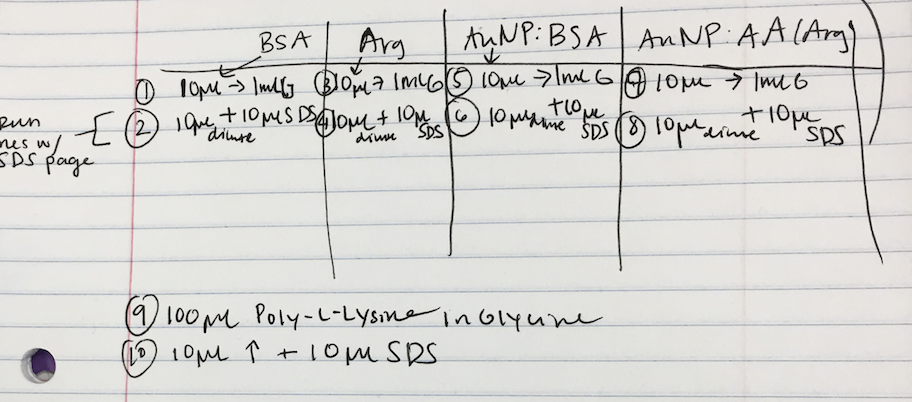 BSA Arg AuNP:BSA AuNP:AA(Arg)
① 10µL → 1mL G ③ 10µL → 1mL G ⑤ 10µL → 1mL G ⑦ 10µL → 1mL G
Run ② 10µL dilute + 10µL SDS ④ 10µL dilute + 10µL SDS ⑥ 10µL dilute + 10µL SDS ⑧ 10µL dilute + 10µL SDS
w/
SDS page
⑨ 100µL Poly-L-Lysine in Glycine
⑩ 10µL ↑ + 10µL SDS